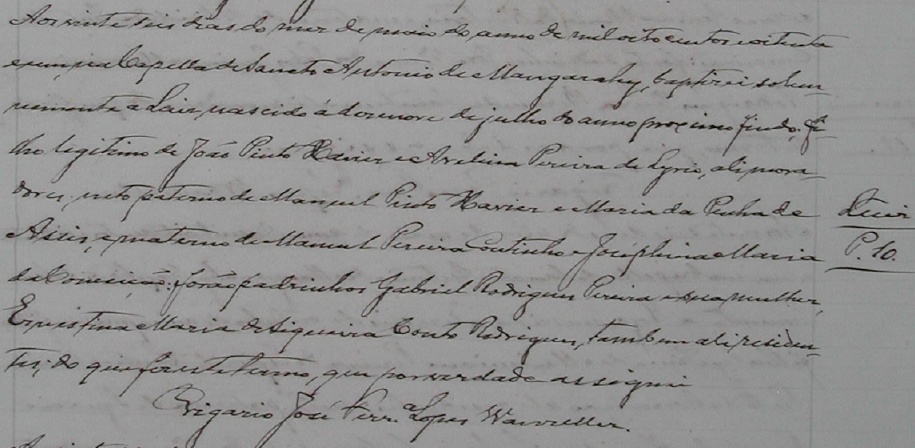 Aos vinte seis dias do mez de maio do anno de mil oito centos e oitenta
e um, na Capella de Sancto Antonio de Mangarahy, baptizei solem-
nemente a Luiz, nascido á dezenove de julho do anno proximo findo, fi-
lho legitimo de João Pinto Xavier e Avelina Pereira de Lyrio, ali mora-
dores, neto paterno de Manuel Pinto Xavier e Maria da Penha de
Assis, e materno de Manuel Pereira Coutinho e Josephina Maria
da Conceição. Forão padrinhos Gabriel Rodrigues Pereira e sua mulher,
Ernestina Maria de Siqueira Couto Rodrigues, tambem ali residen-
tes; do que fiz este termo, que por verdade assignei
O Vigario José Ferr.ª Lopes
Luiz
P. 10.